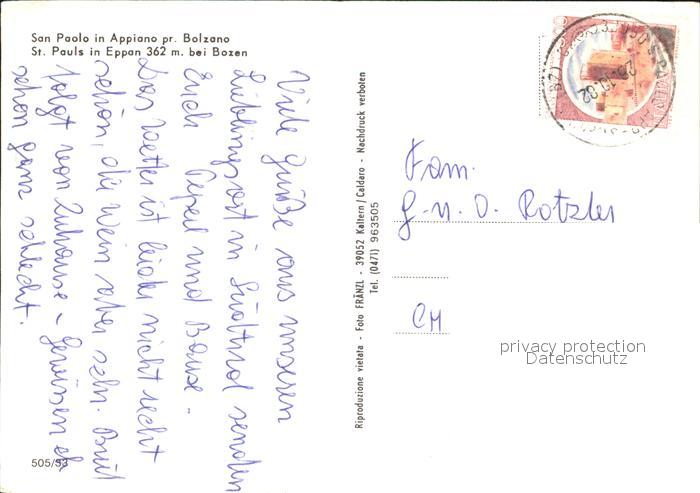 San Paolo in Appiano pr. Bolzano
St. Pauls in Eppan 362 m. bei Bozen
Viele Grüße aus unserem
Lieblingsort in Südtirol senden
Euch und
Das Wetter ist leider nicht recht
schön, der Wein aber sehr. Brief
folgt von Zuhause - Gewissen ist
schon ganz schlecht.
505/53
Riproduzione vietata - Foto FRÄNZL - 39052 Kaltern/Caldaro - Nachdruck verboten
Tel. (0471) 963505
Fam.
G. u. O. Rotzler
CH
privacy protection
Datenschutz